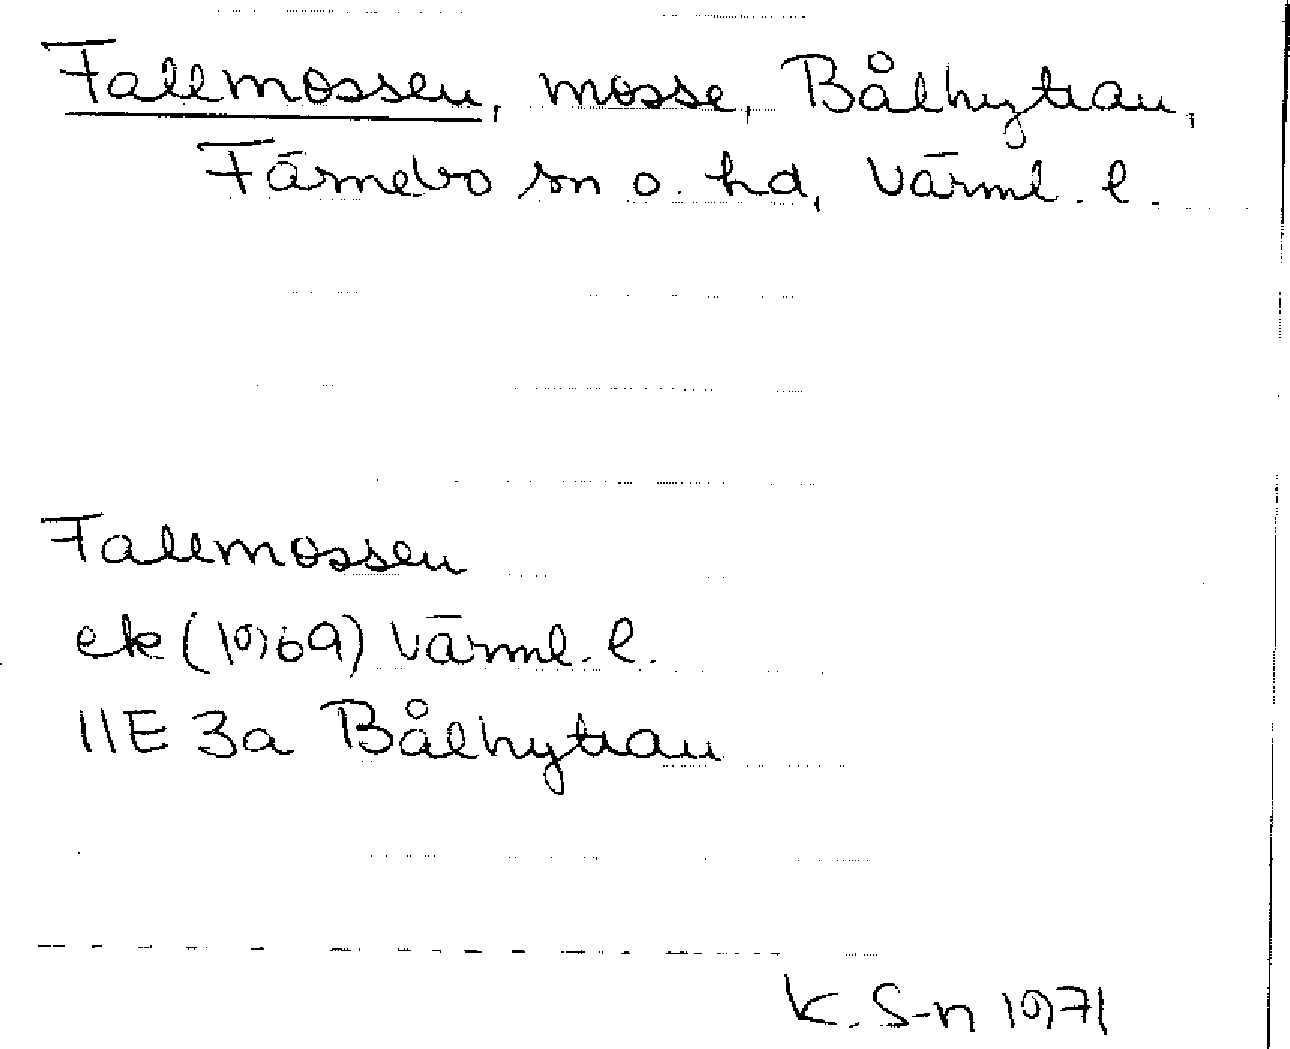 Fallmossen, mosse, Bålhyttan,
Färnebo sn o. hd, Värml. l.
Fallmossen
ek (1969) Värml. l.
11E 3a Bålhyttan
K. S-n 1971